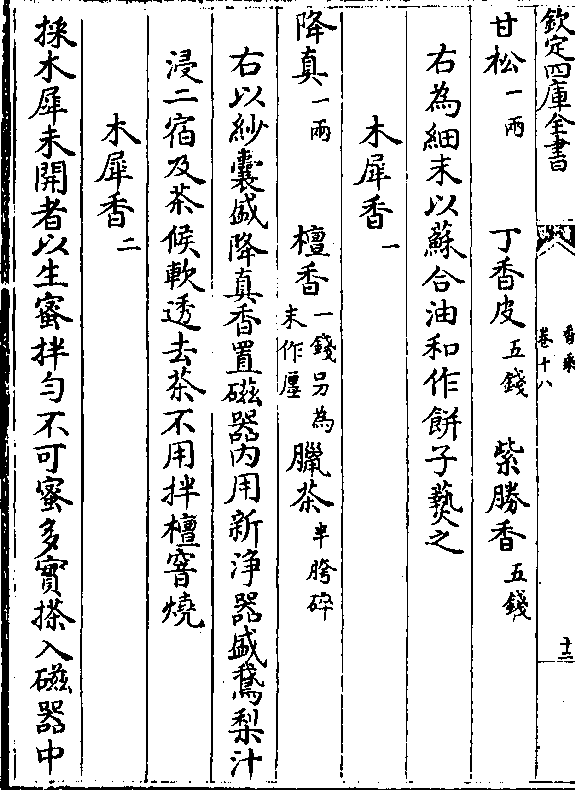 欽定四庫全書
香乘
卷十八
十三
甘松一兩 丁香皮五錢 紫勝香五錢
右為細末以蘇合油和作餅子爇之
木犀香一
降真一兩 檀香一錢另為末作㕓 臘茶半胯碎
右以紗囊盛降真香置磁器内用新淨器盛鵞梨汁
浸二宿及茶候軟透去茶不用拌檀窨燒
木犀香二
採木犀未開者以生蜜拌匀不可蜜多實搽入磁器中